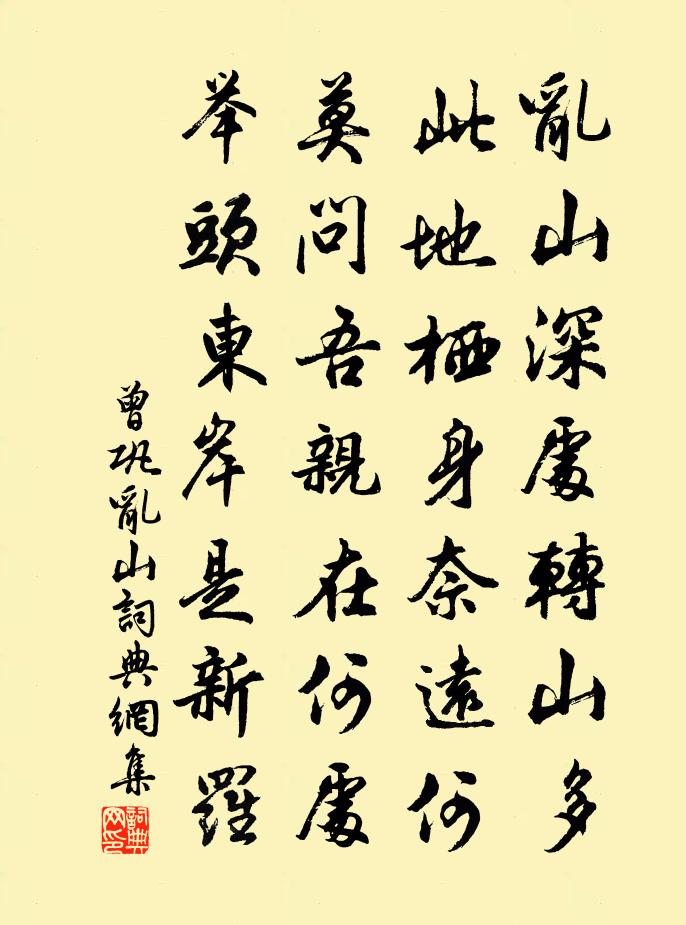 亂山深處轉山多
此地栖身奈遠何
莫問吾親在何處
举頭東岸是新羅
曾巩亂山詞典網集
詞典網印